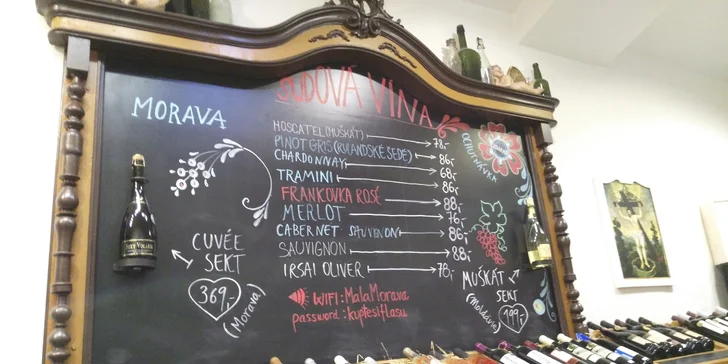 SUDOVÁ VÍNA
MORAVA
MOSCATEL (MUŠKÁT) 78,-
PINOT GRIS (RULANDSKÉ ŠEDÉ) 86,-
CHARDONNAY 68,-
TRAMINI 86,-
FRANKOVKA ROSÉ 88,-
MERLOT 76,-
CABERNET SAUVIGNON 86,-
SAUVIGNON 88,-
IRSAI OLIVER 78,-
OCHUTNÁVKA
CUVÉE
SEKT
369,-
(Morava)
WIFI: MalaMorava
password: kupfesiflasu
MUŠKÁT
SEKT
199,-